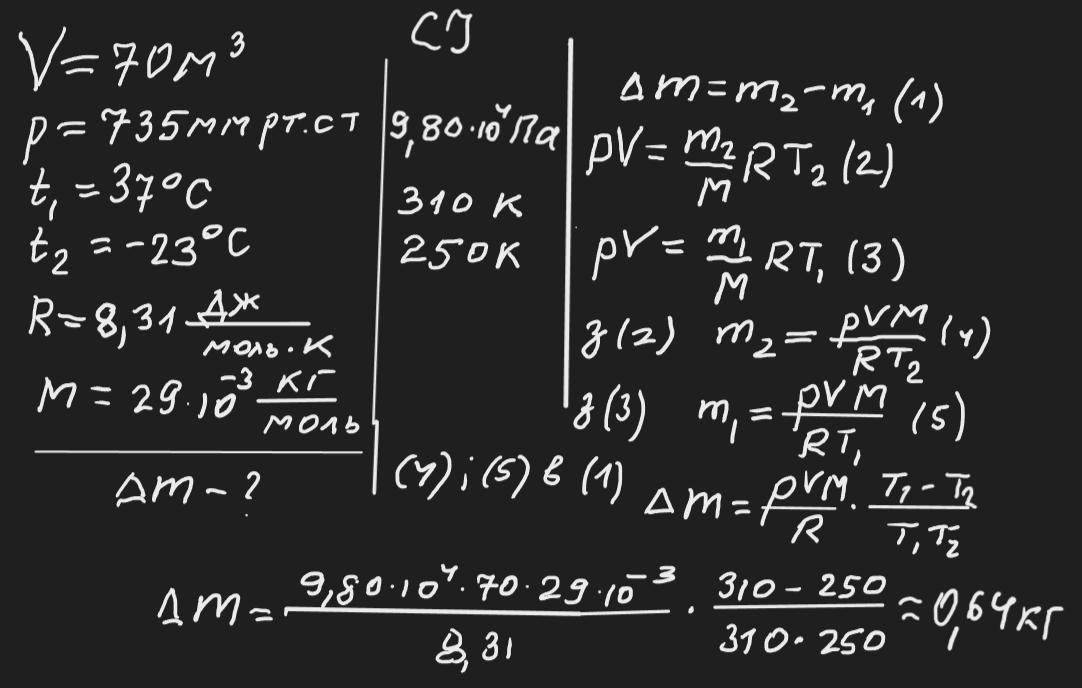 V=70м³
p=735мм рт.ст
t₁=37°C
t₂=-23°C
R=8,31 Дж/моль·К
M=29·10⁻³ кг/моль
Δm-?
СІ
9,80·10⁴Па
310 К
250К
Δm=m₂-m₁ (1)
pV=m₂/M RT₂ (2)
pV=m₁/M RT₁ (3)
з (2) m₂=pVM/RT₂ (4)
з (3) m₁=pVM/RT₁ (5)
(4);(5) в (1) Δm=pVM/R·T₁-T₂/T₁T₂
Δm=9,80·10⁴·70·29·10⁻³/8,31·310-250/310·250≈0,64кг